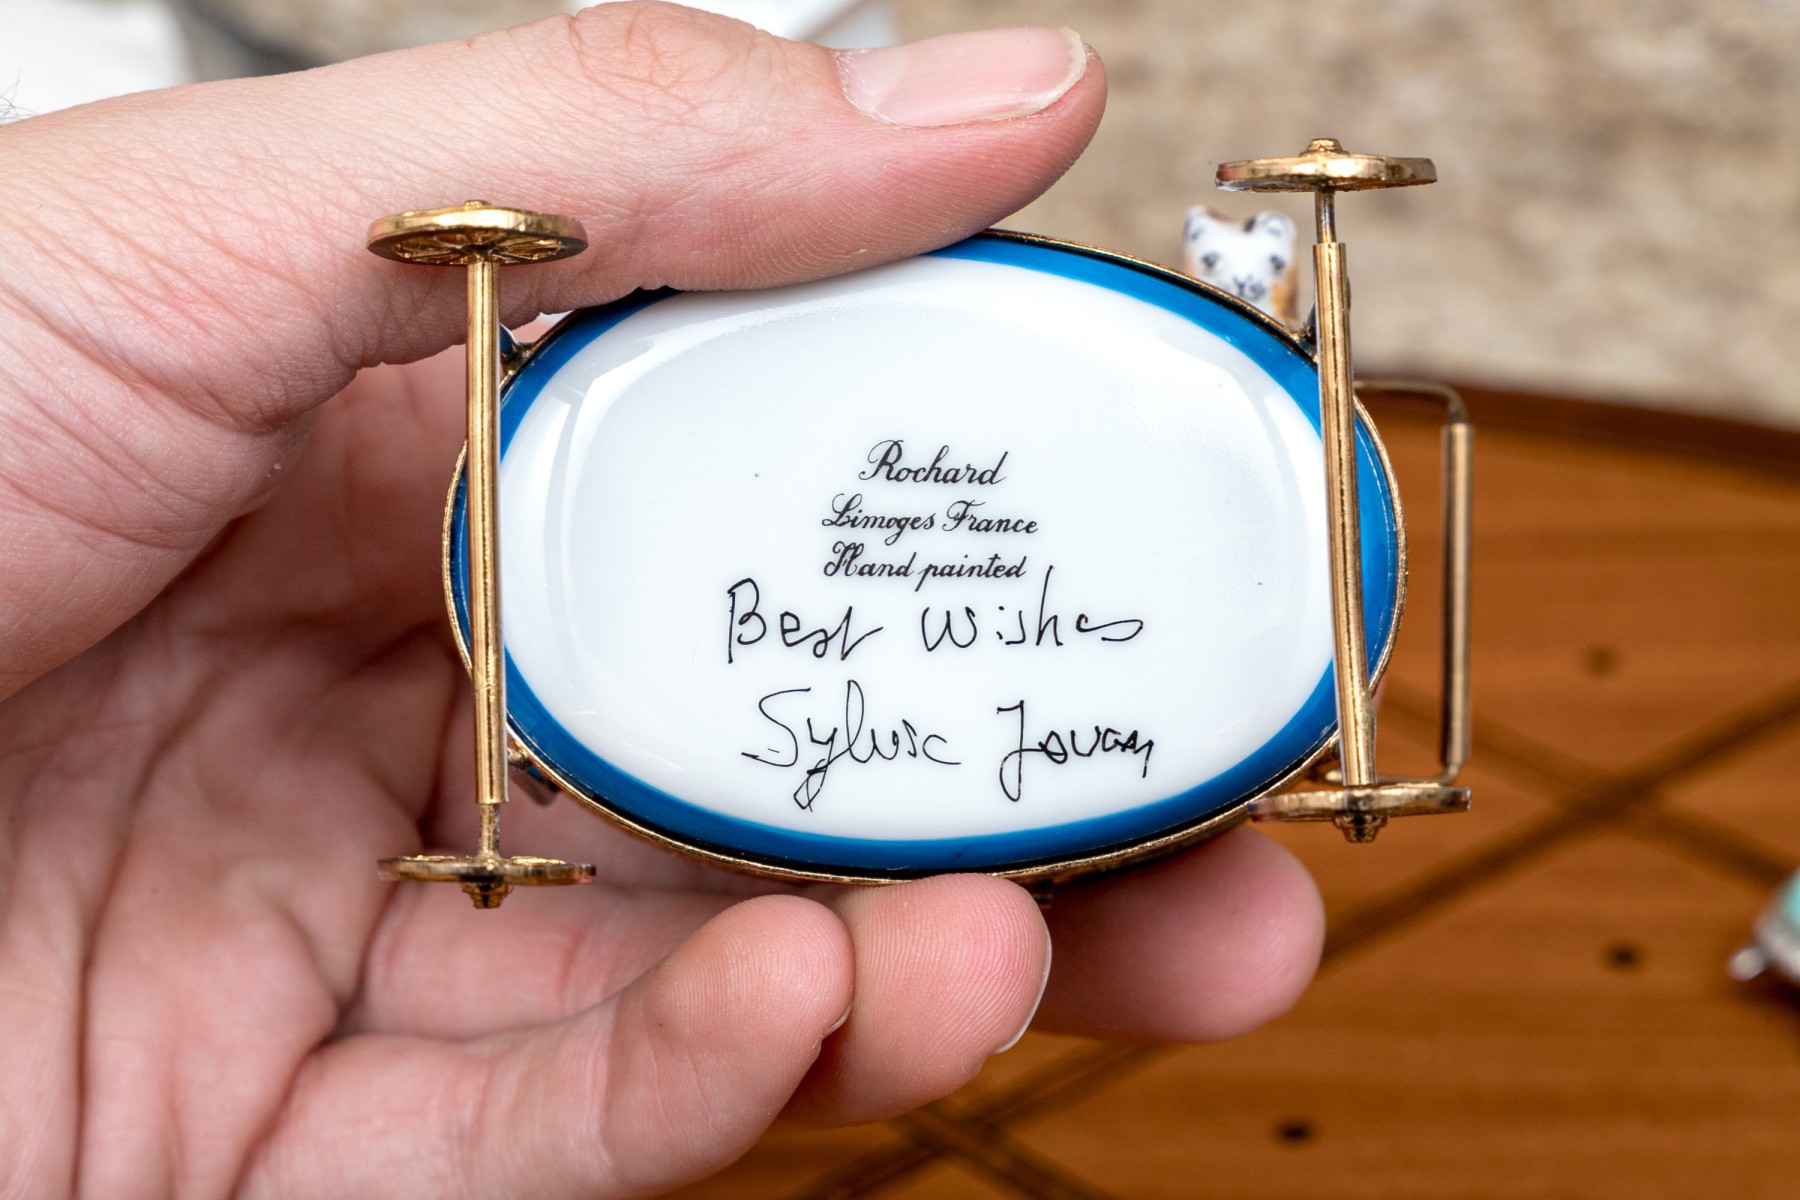 Rochard
Limoges France
Hand painted
Best Wishes
Sylvie